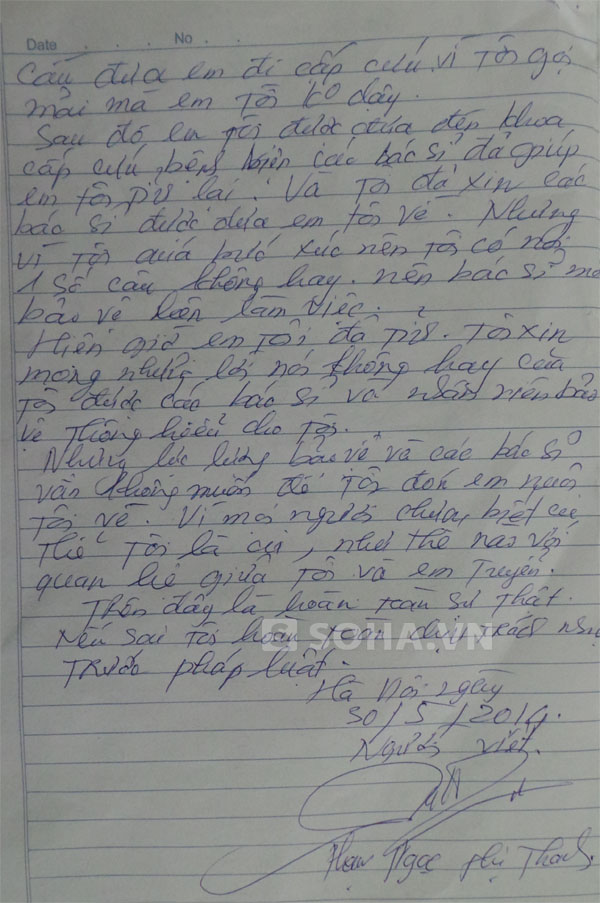 Date . . . . No . .
cầu đưa em đi cấp cứu vì tôi gọi
mãi mà em tôi ko dậy.
Sau đó em tôi được đưa đến khoa
cấp cứu bệnh viện các bác sĩ đã giúp
em tôi tỉnh lại. Và tôi đã xin các
bác sĩ được đưa em tôi về. Nhưng
vì tôi quá bức xúc nên tôi có nói
1 số câu không hay. nên bác sĩ mời
bảo vệ lên làm việc.
Hiện giờ em tôi đã tỉnh. Tôi xin
mong những lời nói không hay của
tôi được các bác sĩ và nhân viên bảo
vệ thông hiểu cho tôi.
Nhưng lực lượng bảo vệ và các bác sĩ
vẫn không muốn để tôi đón em nuôi
tôi về. Vì mọi người chưa biết cụ
thể tôi là ai, như thế nào với
quan hệ giữa tôi và em Truyền.
Trên đây là hoàn toàn sự thật.
Nếu sai tôi hoàn toàn chịu trách nhiệm
trước pháp luật.
SOHA.VN
Hà Nội ngày
30/5/2014.
Người viết.
Ngọc Thanh